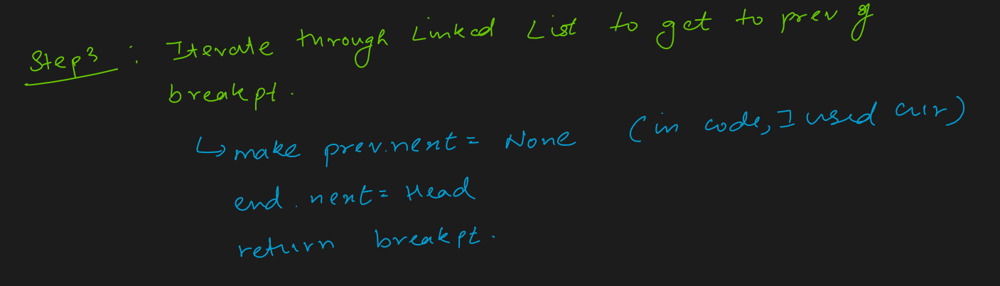 Step3 : Iterate through Linked List to get to prev of
breakpt.
↳ make prev.next = None (in code, I used cur)
end.next = Head
return breakpt.